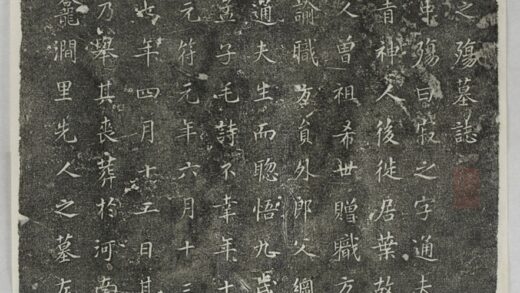 之殤墓誌
中殤曰寂之字通夫
青神人後徙居葉故
人曾祖希世贈職方
諭職方員外郎父綱
通夫生而聦悟九歲
孟子毛詩不幸年十
元符元年六月十三
年四月十五日其
乃舉其喪葬於河南
龍澗里先人之墓左